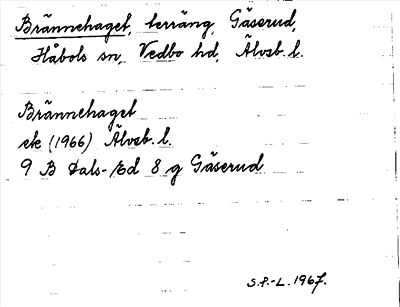 Brännehaget, terräng, Gäserud,
Håbols sn, Vedbo hd, Älvsb. l.
Brännehaget
ek (1966) Älvsb. l.
9 B Dals-Ed 8 g Gäserud
S.P.-L. 1967.